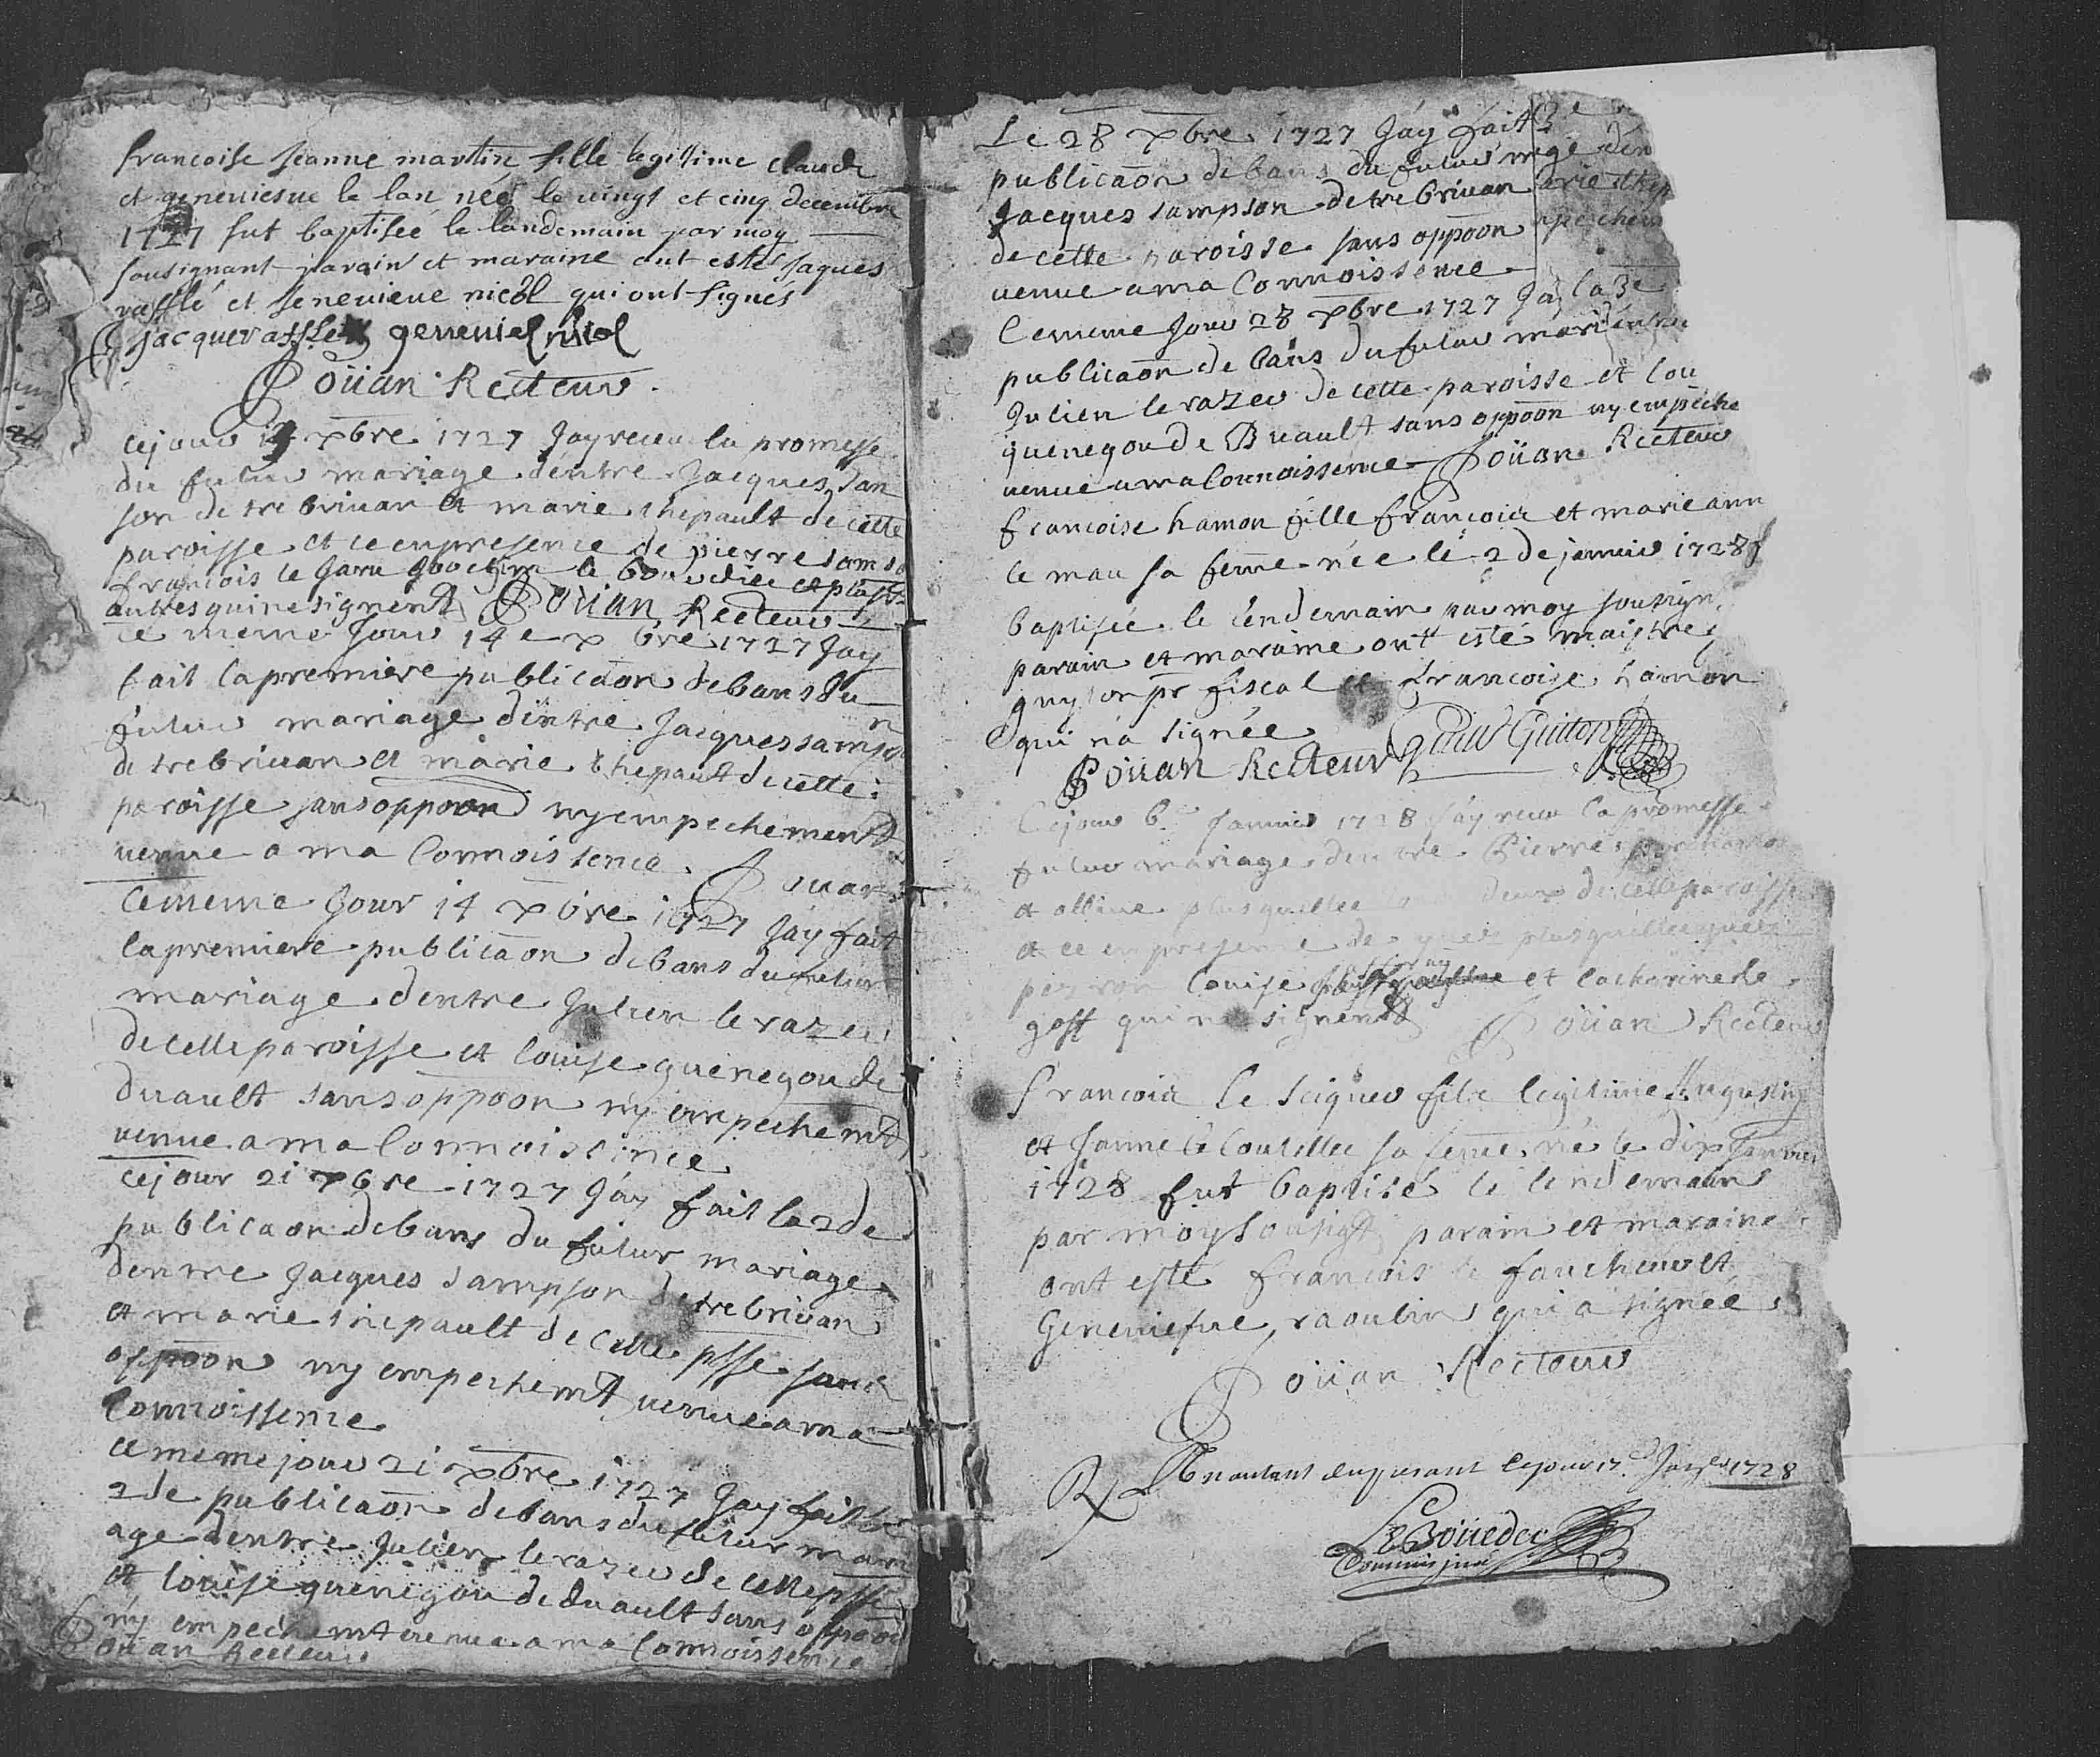 francoise Jeanne martin, fille legitime claude
et geneviesve le lan née le vingt et cinq decembre
1727 fut baptisée le landemain par moy
sousignant parain et maraine ont esté Jaques
rafflé et Jenevieve nicol qui ont signés
Jacque raffle genevief nicol
Poüan Recteur
cejour 14 xbre 1727 Jay receu la promesse
du futur mariage dentre Jacques San
son de trebrivan et marie thepault de cette
paroisse et ce en presence de pierre samso
francois le Garu
autres qui ne signent Poüan Recteur
ce meme Jour 14e xbre 1727 Jay
fait la premiere publicaon de bans du
futur mariage dentre Jacques sampson
de trebrivan et marie thepault de cette
paroisse sans oppoon ny empechement
venue a ma Connoissence Poüan
Cememe Jour 14 xbre 1727 Jay fait
la premiere publicaon de bans du futur
mariage dentre Julien le razer
de cette paroisse et louise quenegou de
duault sans oppoon ny empechemt
venue a ma Connoissence
cejour 21 xbre 1727 Jay fait la 2de
publicaon de bans du futur mariage
dentre Jacques Sampson de trebrivan
et marie thepault de Cette psse sans
oppoon ny empechemt venue a ma
Connoissence
ce meme jour 21 xbre 1727 Jay fait la
2de publicaon de bans du futur mari
age dentre Julien le razer de cette psse
et louise quenegou de duault sans oppoon
ny empechemt venue a ma Connoissence
Poüan Recteur
Le 28 xbre 1727 Jáy fait 3e
publicaon de bans du futur mge den
Jacques sampson de trebrivan arie thep
de cette paroisse sans oppoon npechem
venue a ma Connoissence
Cememe Jour 28 xbre 1727 Jay la 3e
publicaon de bans du futur mari dentre
Julien le razer de cette paroisse et lou
quenegou de Duault sans oppoon ny empeche
venue a ma Connoissence Poüan Recteur
francoise hamon fille francois et marie ann
le mau sa femme née le 2 de janvier 1728 f
baptisée le lendemain par moy sousign
parain et maraine ont esté maistre
guyton pr fiscal et francoise hamon
qui n'a signée
Poüan Recteur Guiton
Cejour 6e Janvier 1728 Jáy receu la promesse
futur mariage dentre Pierre
et olline plusquellec tous deux de cette paroisse
et ce en presence de plusquellec
perron louise et catherine le
goff qui ne signent Poüan Recteur
francois le Seigner fils legitime Augustin
et Janne le Coutellec sa femme né le dix Janvier
1728 fut baptisé le lendemain
par moy sousigt parain et maraine
ont esté francois le faucheur et
Geneviefve raoulin qui a signée
Poüan Recteur
cejour 17e 1728
Le Boüedec
Commis jure